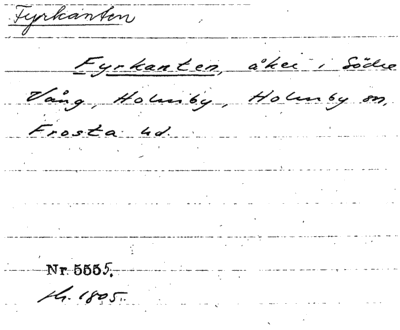 Fyrkanten
Fyrkanten, åker i Södre
Vång, Holmby, Holmby sn,
Frosta hd.
Nr 5555.
fr. 1805.